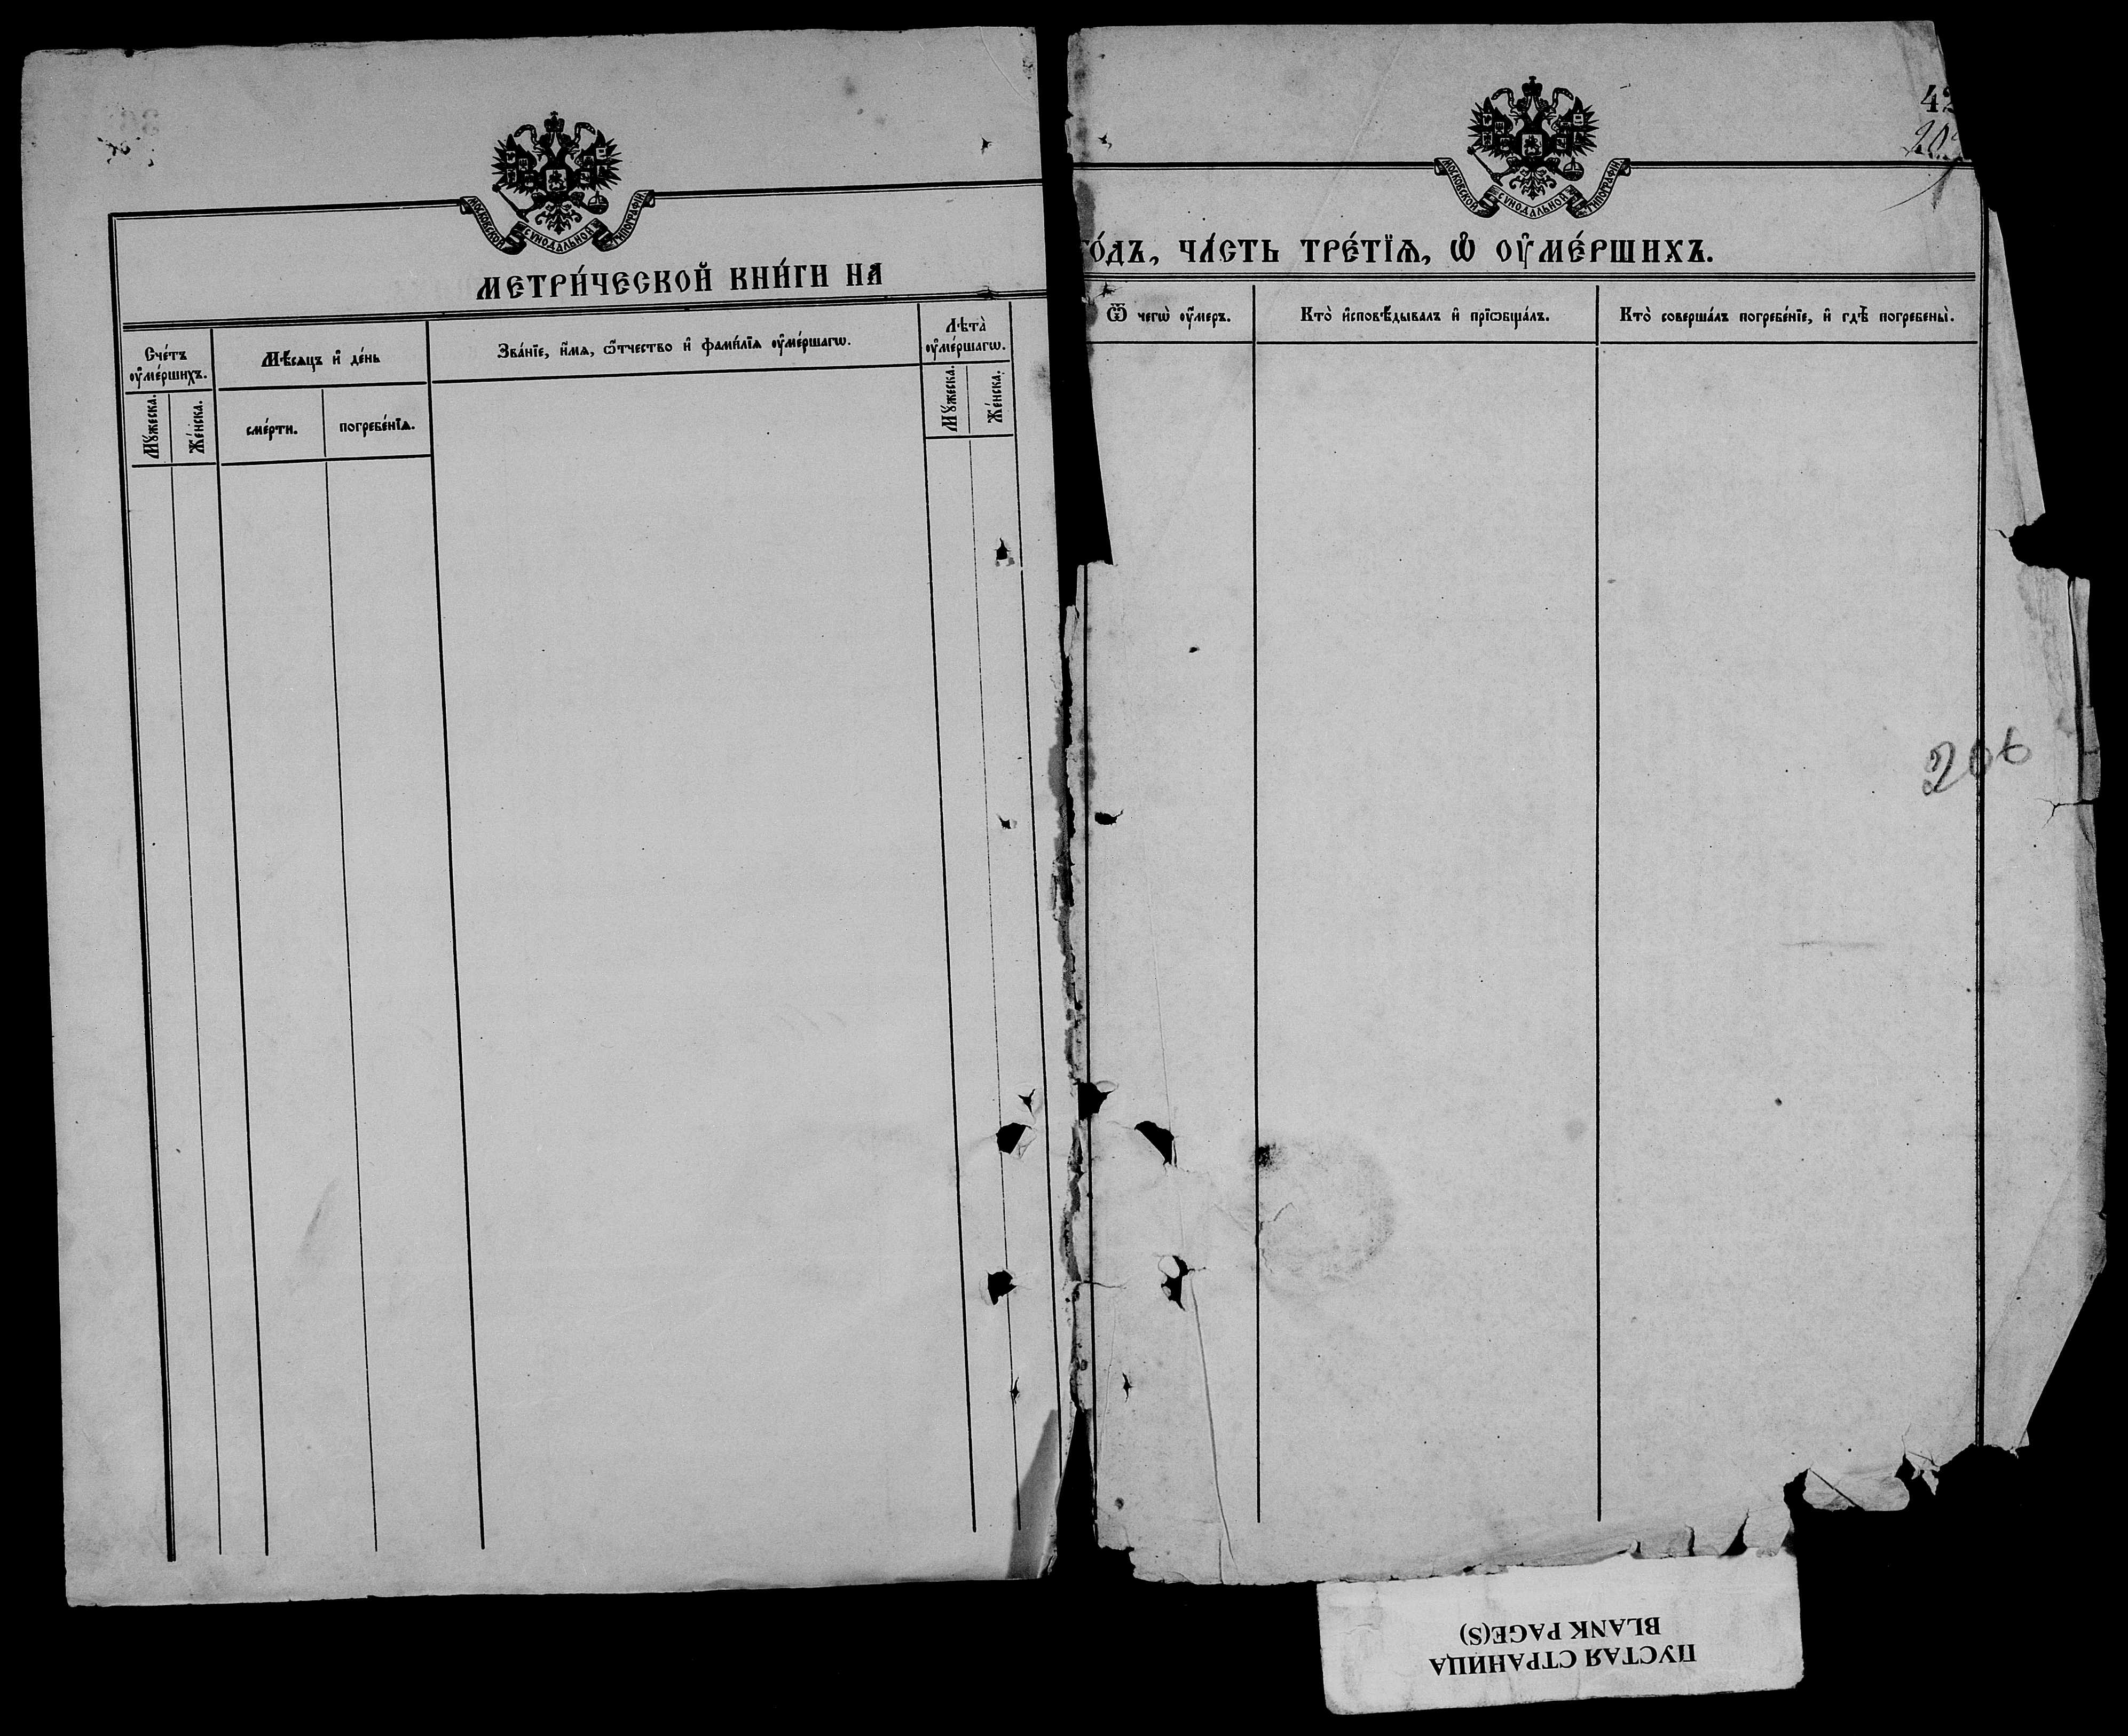 МОСКОВСКОЙ СѴНОДАЛЬНОЙ ТИПОГРАФІИ.
МЕТРИ́ЧЕСКОЙ КНИ́ГИ НА
Сче́тъ ᲂу҆ме́ршихъ.
Мѣ́сяцъ и҆ де́нь
Зва́нїе, и҆́мѧ, ѻ҆́тчество и҆ фами́лїѧ ᲂу҆ме́ршагѡ.
Лѣта̀ ᲂу҆ме́ршагѡ.
Мꙋ́жеска.
Же́нска.
сме́рти.
погребе́нїѧ.
Мꙋ́жеска.
Же́нска.
42
МОСКОВСКОЙ СѴНОДАЛЬНОЙ ТИПОГРАФІИ.
ГО́ДЪ, ЧА́СТЬ ТРЕ́ТЇѦ, Ѡ҆ ОУ҆МЕ́РШИХЪ.
Ѿ чегѡ̀ ᲂу҆́мер​ъ.
Кто̀ и҆сповѣ́дывалъ и҆ прїѡбща́лъ.
Кто̀ соверша́лъ погребе́нїе, и҆ гдѣ̀ погребены̀.
206
ПУСТАЯ СТРАНИЦА
BLANK PAGE(S)